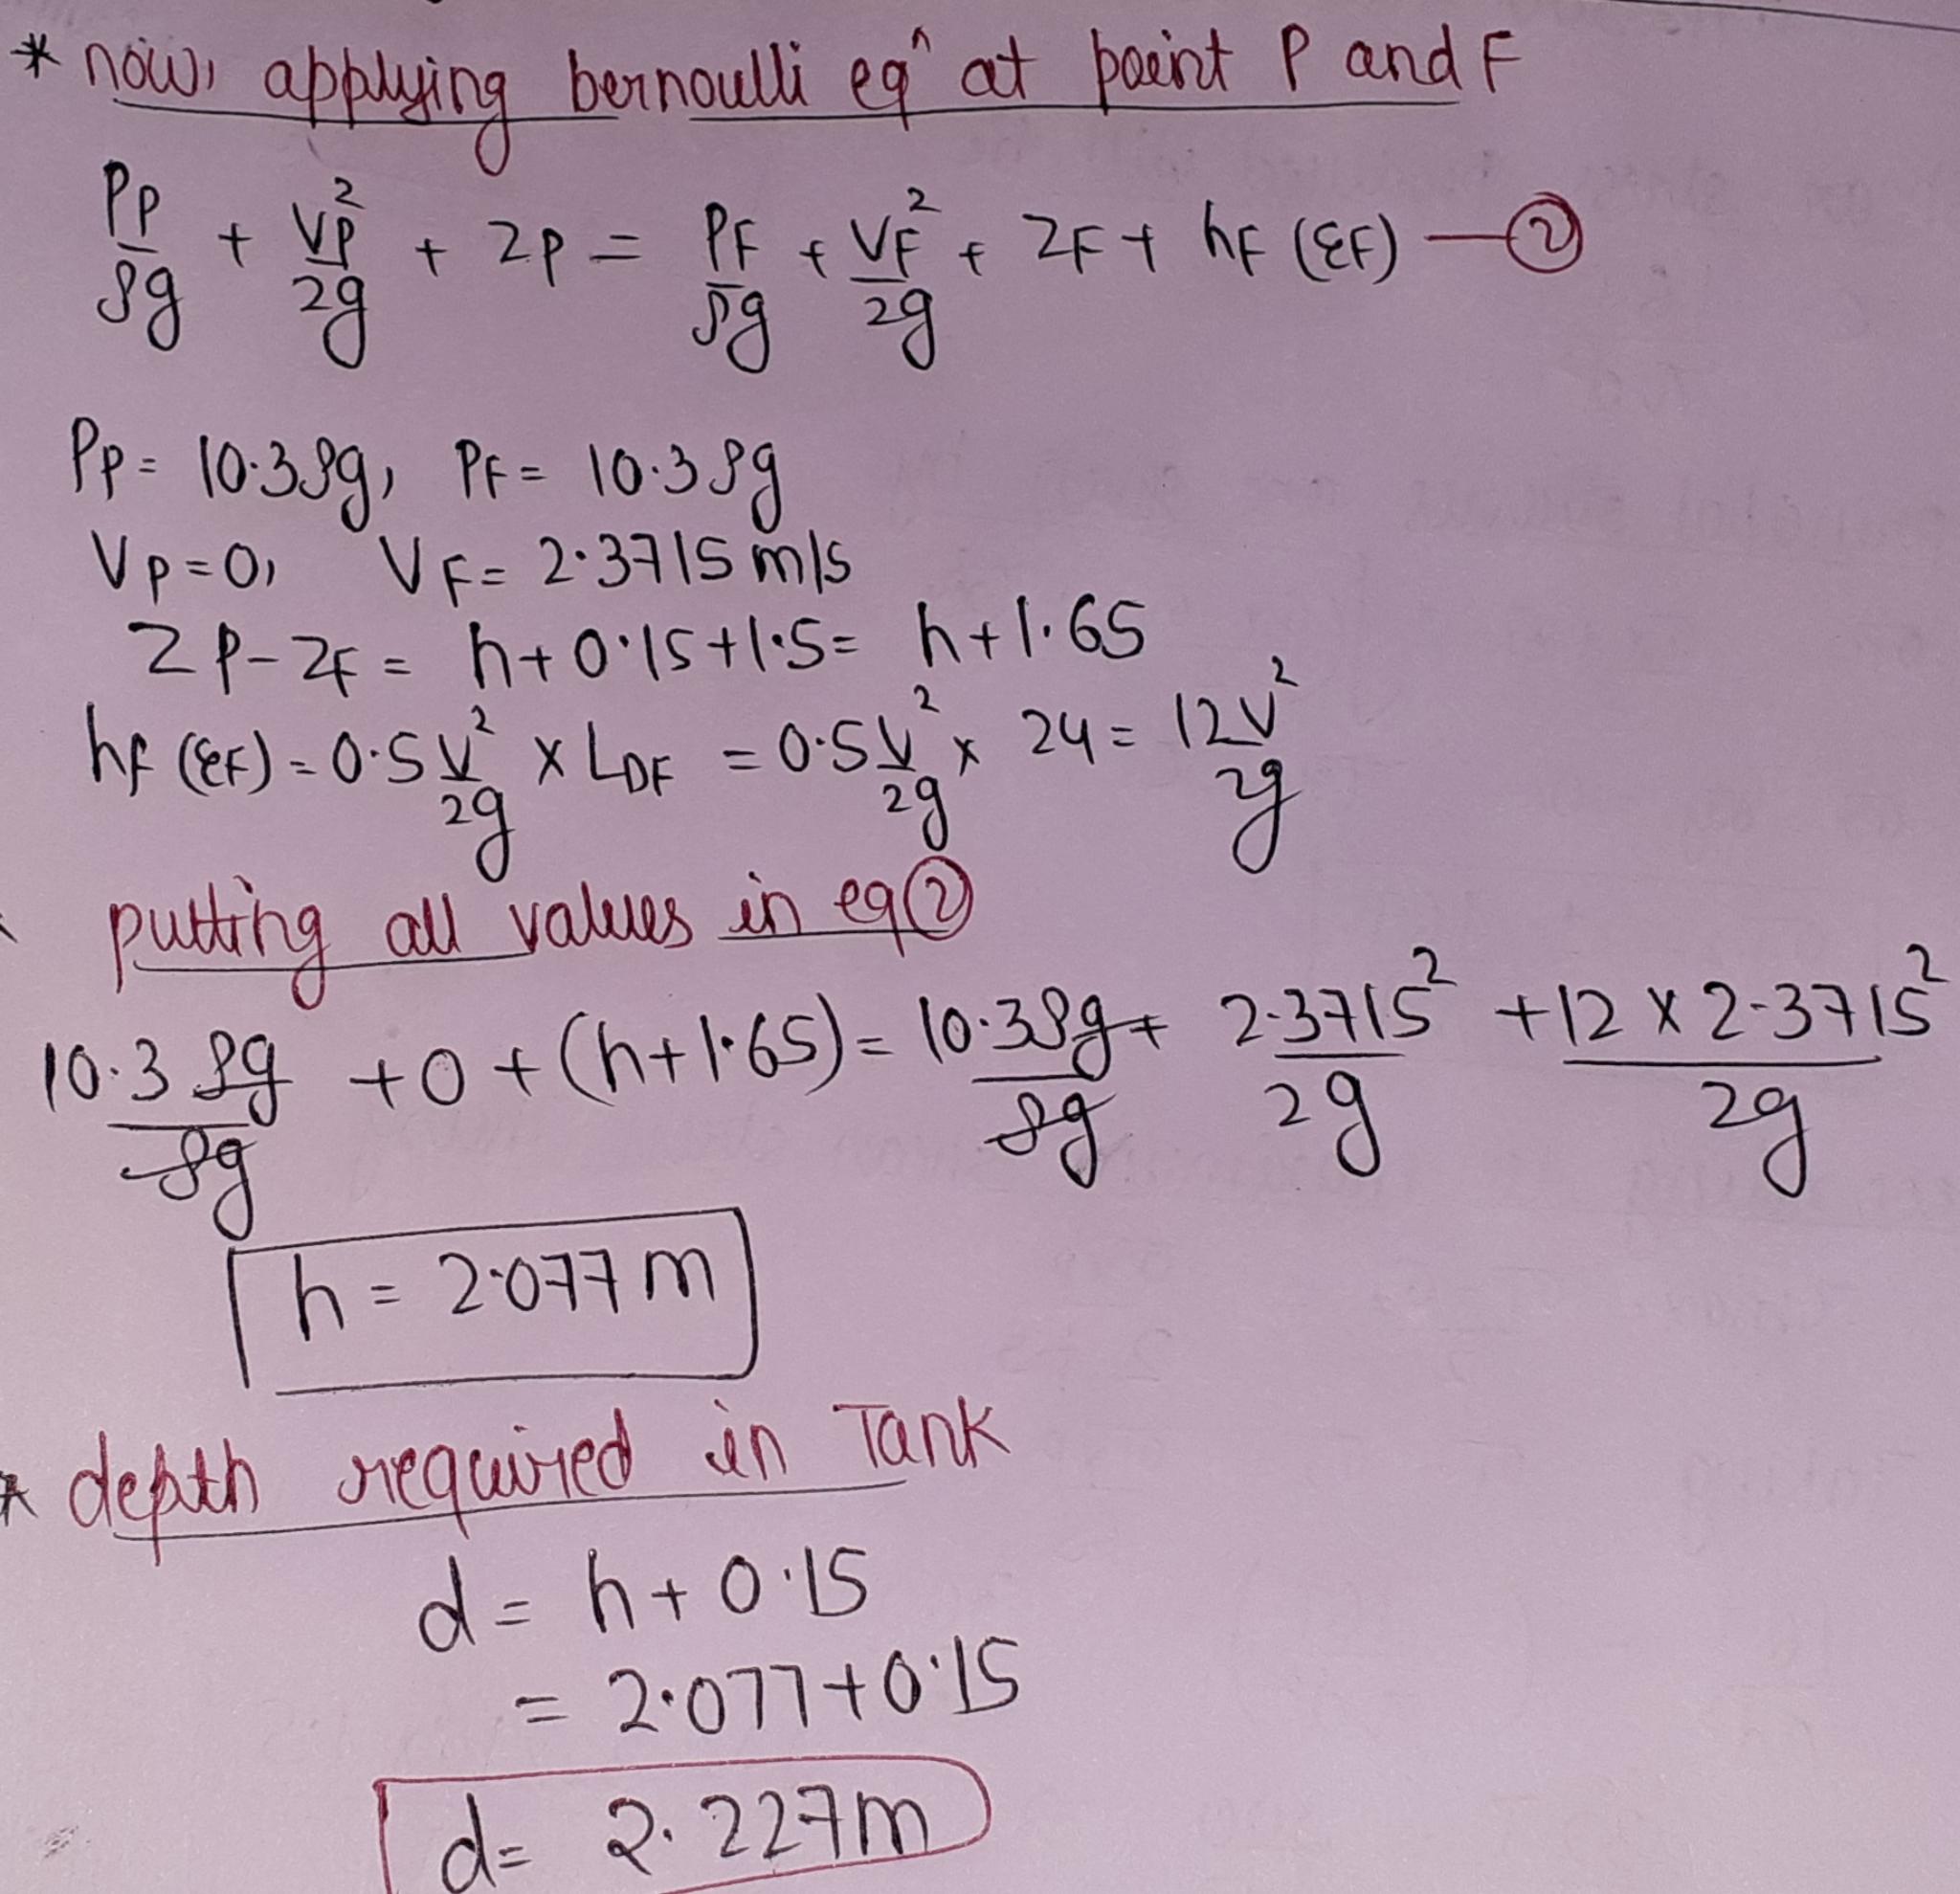 * now, applying bernoulli eqⁿ at point P and F
PP/ρg + VP²/2g + ZP = PF/ρg + VF²/2g + ZF + hF (EF) — ②
PP = 10.3ρg, PF = 10.3ρg
VP = 0, VF = 2.3715 m/s
ZP - ZF = h + 0.15 + 1.5 = h + 1.65
hf (EF) = 0.5 V²/2g × LDF = 0.5 V²/2g × 24 = 12V²/2g
putting all values in eq ②
10.3 ρg/ρg + 0 + (h + 1.65) = 10.3ρg/ρg + 2.3715²/2g + 12 × 2.3715²/2g
h = 2.077 m
* depth required in Tank
d = h + 0.15
= 2.077 + 0.15
d = 2.227m